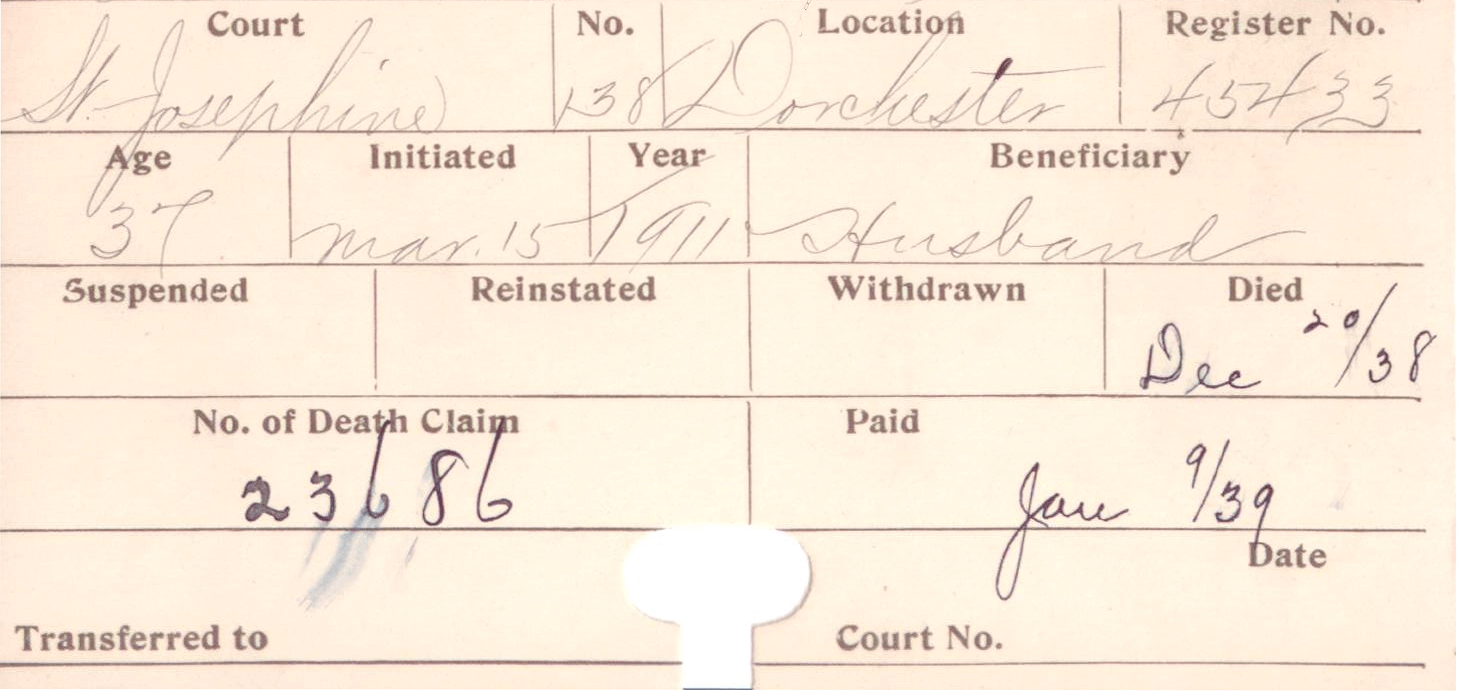 Court No. Location Register No.
St. Josephine 138 Dorchester 45433
Age Initiated Year Beneficiary
37 Mar. 15 1911 Husband
Suspended Reinstated Withdrawn Died
Dec 20/38
No. of Death Claim Paid
23686 Jan 9/39
Date
Transferred to Court No.